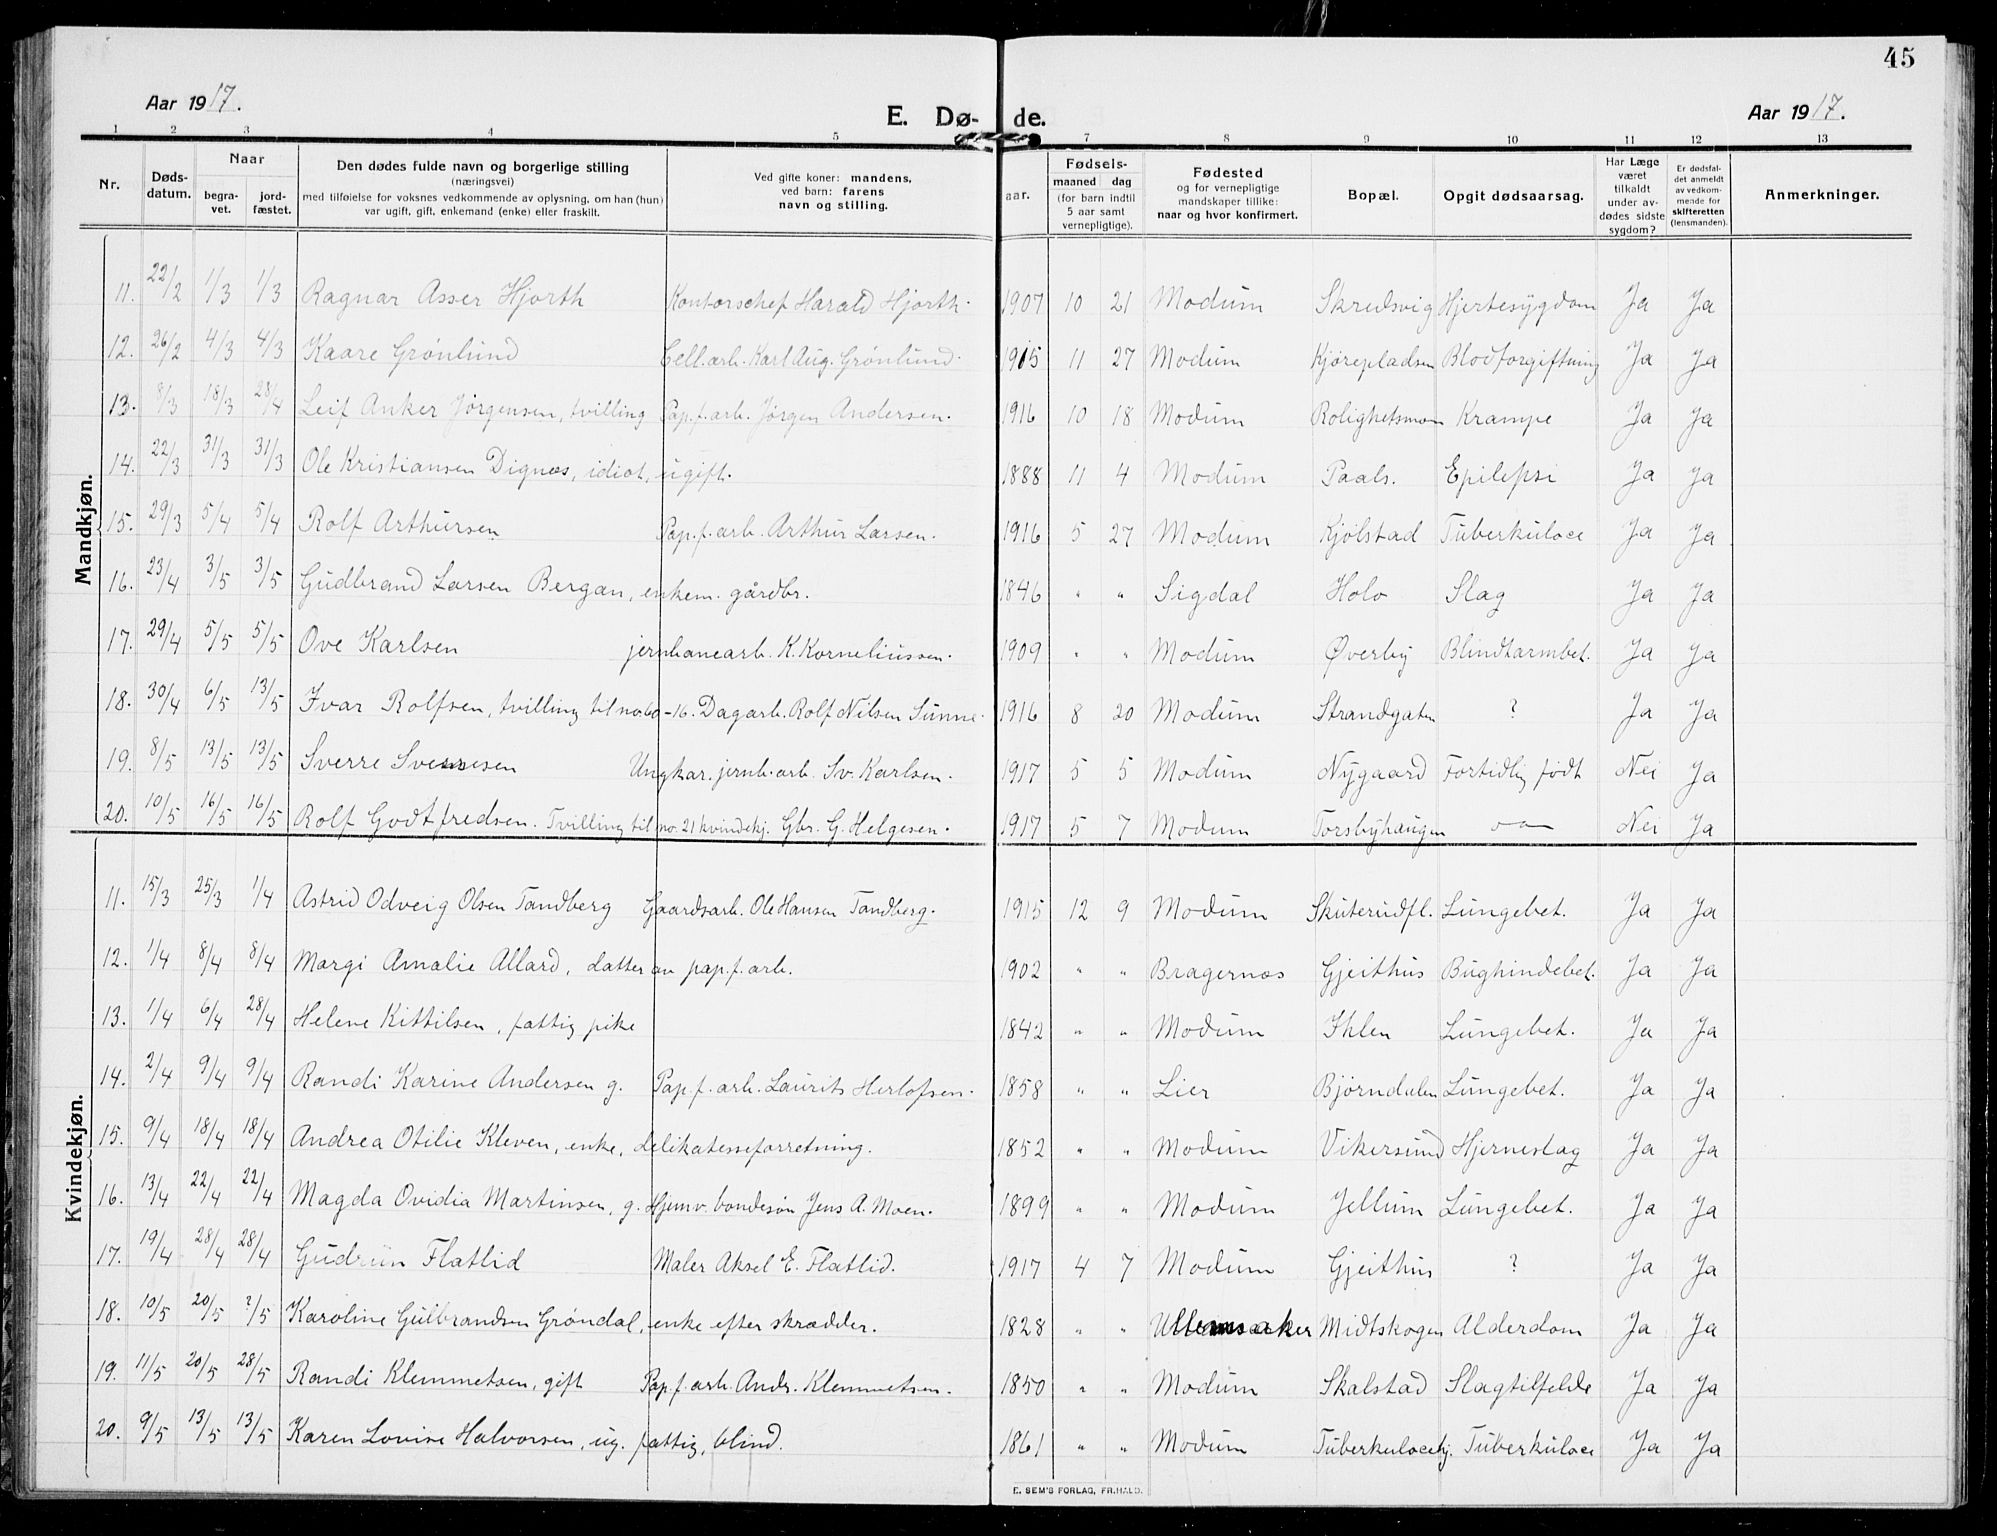 45
Aar 1917.
E. Dø-
de.
Aar 1917.
1 2 3 4 5 7 8 9 10 11 12 13
Nr. Døds-datum. Naar begra-vet. jord-fæstet. Den dødes fulde navn og borgerlige stilling (næringsvei) med tilføielse for voksnes vedkommende av oplysning, om han (hun) var ugift, gift, enkemand (enke) eller fraskilt. Ved gifte koner: mandens, ved barn: farens navn og stilling. Fødsels- aar. maaned dag (for barn indtil 5 aar samt vernepligtige). Fødested og for vernepligtige mandskaper tillike: naar og hvor konfirmert. Bopæl. Opgit dødsaarsag. Har Læge været tilkaldt under av-dødes sidste sygdom? Er dødsfal-det anmeldt av vedkom-mende for skifteretten (lensmanden). Anmerkninger.
Mandkjøn.
11. 22/2 1/3 1/3 Ragnar Asser Hjorth Kontorschef Harald Hjorth. 1907 10 21 Modum Skredsvig Hjertesygdom Ja Ja
12. 26/2 4/3 4/3 Kaare Grønlund Cell.arb. Karl Aug. Grønlund. 1915 11 27 Modum Kjørepladsen Blodforgiftning Ja Ja
13. 8/3 18/3 28/4 Leif Anker Jørgensen, tvilling Pap.f.arb. Jørgen Andersen. 1916 10 18 Modum Rolighetsmoen Krampe Ja Ja
14. 22/3 31/3 31/3 Ole Kristiansen Dignæs, idiot, ugift. 1888 11 4 Modum Paals. Epilepsi Ja Ja
15. 29/3 5/4 5/4 Rolf Arthursen Pap.f.arb. Arthur Larsen. 1916 5 27 Modum Kjølstad Tuberkuloce Ja Ja
16. 23/4 3/5 3/5 Gudbrand Larsen Bergan, enkem. gårdbr. 1846 " " Sigdal Holo Slag Ja Ja
17. 29/4 5/5 5/5 Ove Karlsen jernbanearb. K. Korneliussen. 1909 " " Modum Øverby Blindtarmbet. Ja Ja
18. 30/4 6/5 13/5 Ivar Rolfsen, tvilling til no. 60-16. Dagarb. Rolf Nilsen Sunne. 1916 8 20 Modum Strandgaten ? Ja Ja
19. 8/5 13/5 13/5 Sverre Svensen Ungkar. jernb.arb. Sv. Karlsen. 1917 5 5 Modum Nygaard Fortidlig født Nei Ja
20. 10/5 16/5 16/5 Rolf Godtfredsen. Tvilling til no. 21 kvindekj. Gbr. G. Helgesen. 1917 5 7 Modum Torsbyhaugen Nei Ja
Kvindekjøn.
11. 15/3 25/3 1/4 Astrid Odveig Olsen Tandberg Gaardsarb. Ole Hansen Tandberg. 1915 12 9 Modum Skuterudfl. Lungebet. Ja Ja
12. 1/4 8/4 8/4 Margi Amalie Allard, datter av pap.f.arb. 1902 " " Bragernæs Gjeithus Bughindebet. Ja Ja
13. 1/4 6/4 28/4 Helene Kittilsen, fattig pike 1842 " " Modum Ihlen Lungebet. Ja Ja
14. 2/4 9/4 9/4 Randi Karine Andersen g. Pap.f.arb. Laurits Herlofsen. 1858 " " Lier Bjørndalen Lungebet. Ja Ja
15. 9/4 18/4 18/4 Andrea Otilie Kleven, enke, delikatesseforretning. 1852 " " Modum Vikersund Hjerneslag Ja Ja
16. 13/4 22/4 22/4 Magda Ovidia Martinsen, g. Hjemv. bondesøn Jens A. Moen. 1899 " " Modum Jellum Lungebet. Ja Ja
17. 19/4 28/4 28/4 Gudrun Flatlid Maler Aksel E. Flatlid. 1917 4 7 Modum Gjeithus ? Ja Ja
18. 10/5 20/5 ?/5 Karoline Gulbrandsen Grøndal, enke efter skrædder. 1828 " " Ullensaker Midtskogen Alderdom Ja Ja
19. 11/5 20/5 28/5 Randi Klemmetsen, gift Pap.f.arb. Andr. Klemmetsen. 1850 " " Modum Skalstad Slagtilfelde Ja Ja
20. 9/5 13/5 13/5 Karen Lovise Halvorsen, ug. fattig, blind. 1861 " " Modum Tuberkulocehj. Tuberkuloce Ja Ja
E. SEM'S FORLAG, FR.HALD.